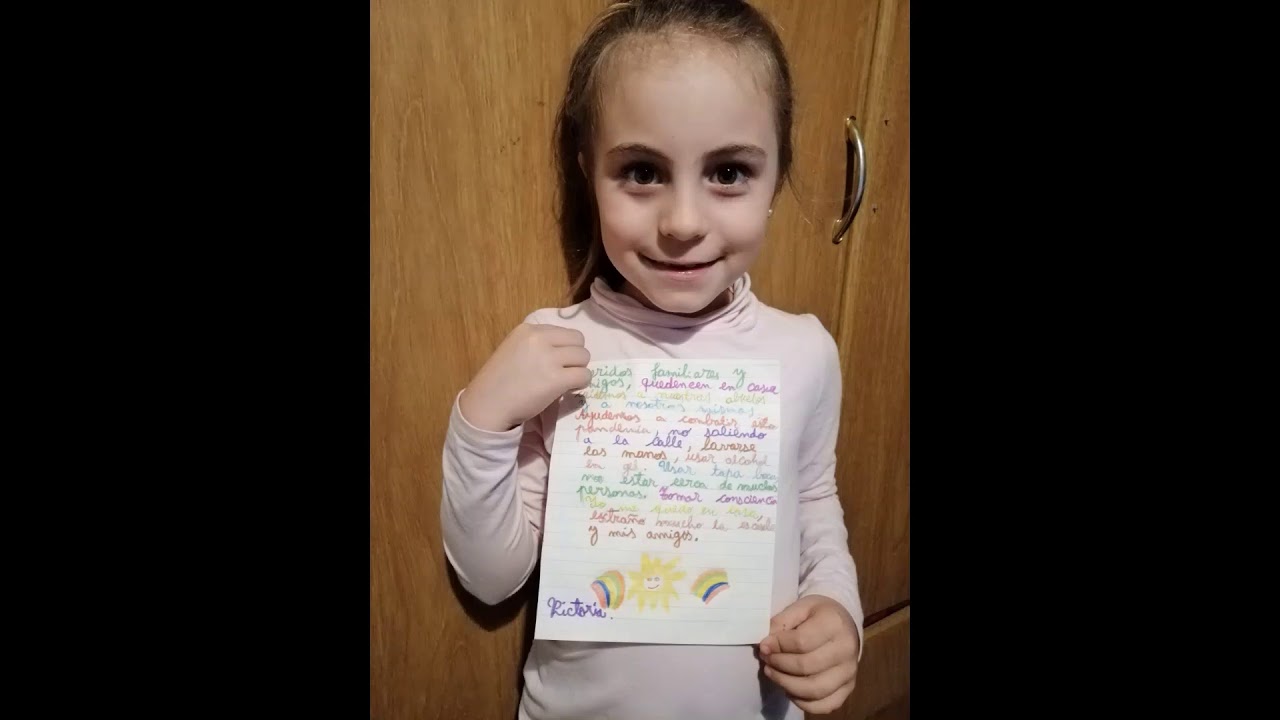 familiares y
quedencen en casa
a nuestros abuelos
y a nosotros mismos
Ayudemos a combatir esta
pandemia, no saliendo
a la calle, lavarse
las manos, usar alcohol
en gel. Usar tapa boca
nos estar cerca de muchas
personas. Tomar consciencia
Yo me quedo en casa,
extraño mucho la escuela
y mis amigos.
Victoria.